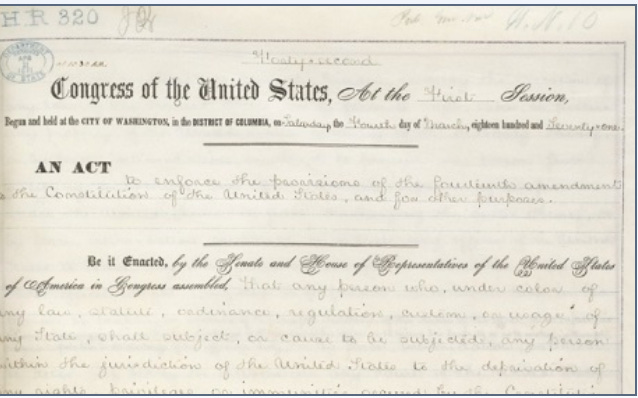 H R 320
Forty-second
Congress of the United States, At the First Session,
Begun and held at the CITY OF WASHINGTON, in the DISTRICT OF COLUMBIA, on Saturday, the Fourth day of March, eighteen hundred and Seventy-one.
AN ACT
to enforce the provisions of the fourteenth amendment
the Constitution of the United States, and for other purposes.
Be it Enacted, by the Senate and House of Representatives of the United States
of America in Congress assembled, That any person who, under color of
ny law, statute, ordinance, regulation, custom, or usage of
ny State, shall subject, or cause to be subjected, any person
within the jurisdiction of the United States to the deprivation of
ny rights, privileges, or immunities secured by the Constitu